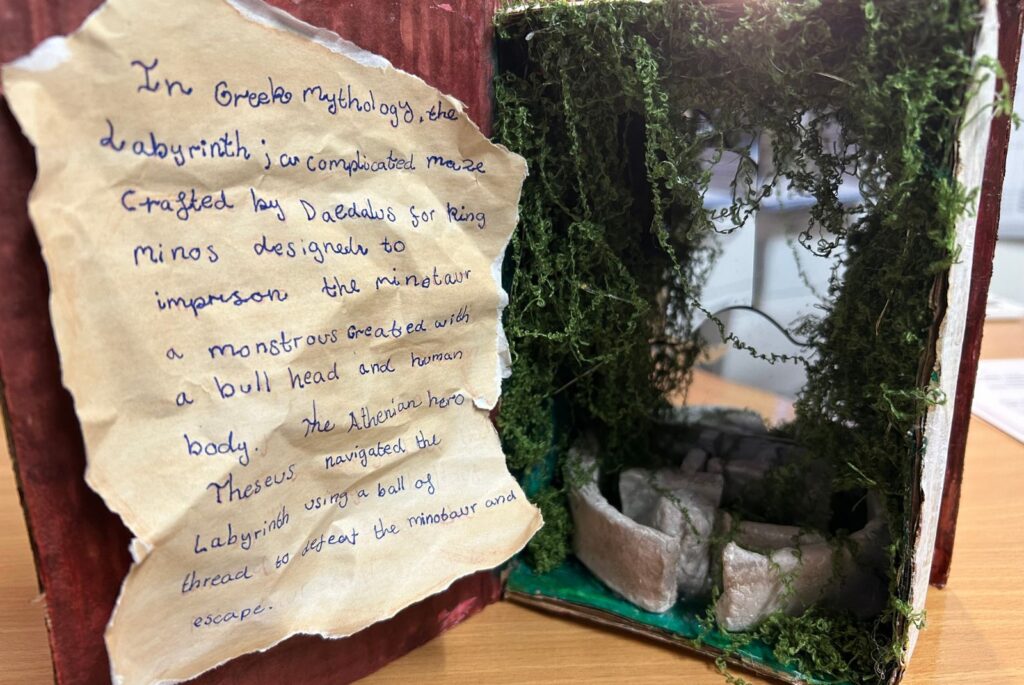 In Greek Mythology, the
Labyrinth ; a complicated maze
Crafted by Daedalus for King
minos designed to
imprison the minotaur
a monstrous Created with
a bull head and human
body. The Athenian hero
Theseus navigated the
Labyrinth using a ball of
thread to defeat the minotaur and
escape.